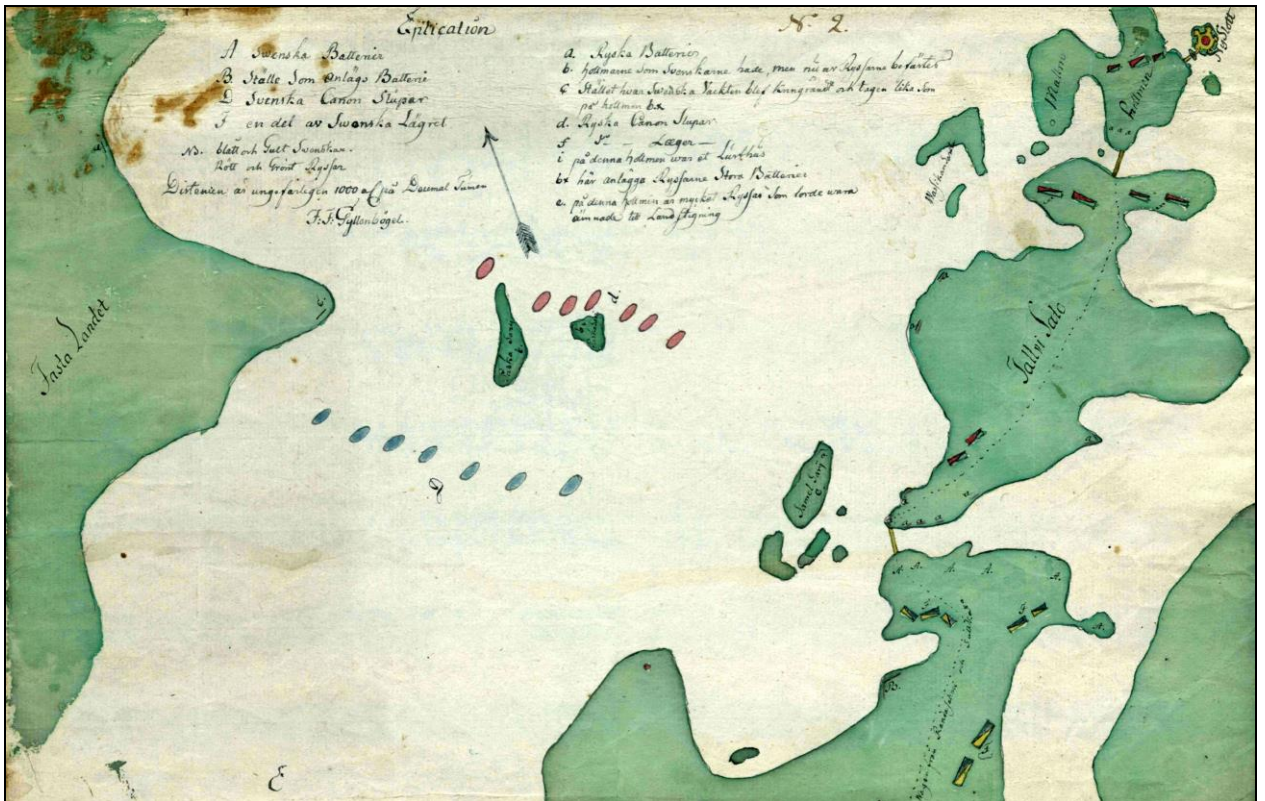 Eplication
N. 2.
A Swenska Batterier
B Ställe Som anlägs Batterie
D Svenska Canon Slupar
F en del av Swenska Lägret
NB. blått och Gult Swenskar.
Rött och Grönt Ryssar
är ungefärligen 1000 på Decimal Tumen
F: F: Gyllenbögel.
a. Ryska Batterier
b. holmarne Som Svenskarne hade, men nu av Ryssarne besatter
c Stället hvar Swedska Vackten blef kringränd och tagen lika som
på holmen bx
d. Ryska Canon Slupar
f D:o — Läger —
i på denna holmen war et Lusthus
bx här anlägga Ryssarne Stora Batterier
e. på denna holmen är mycket Ryssar Som torde wara
ämnade till Landstigning
Fasta Landet
c.
d.
D
E
Malin
holmen
Ny Slott
Tallvi Salo
A. A. A. A. A.
B